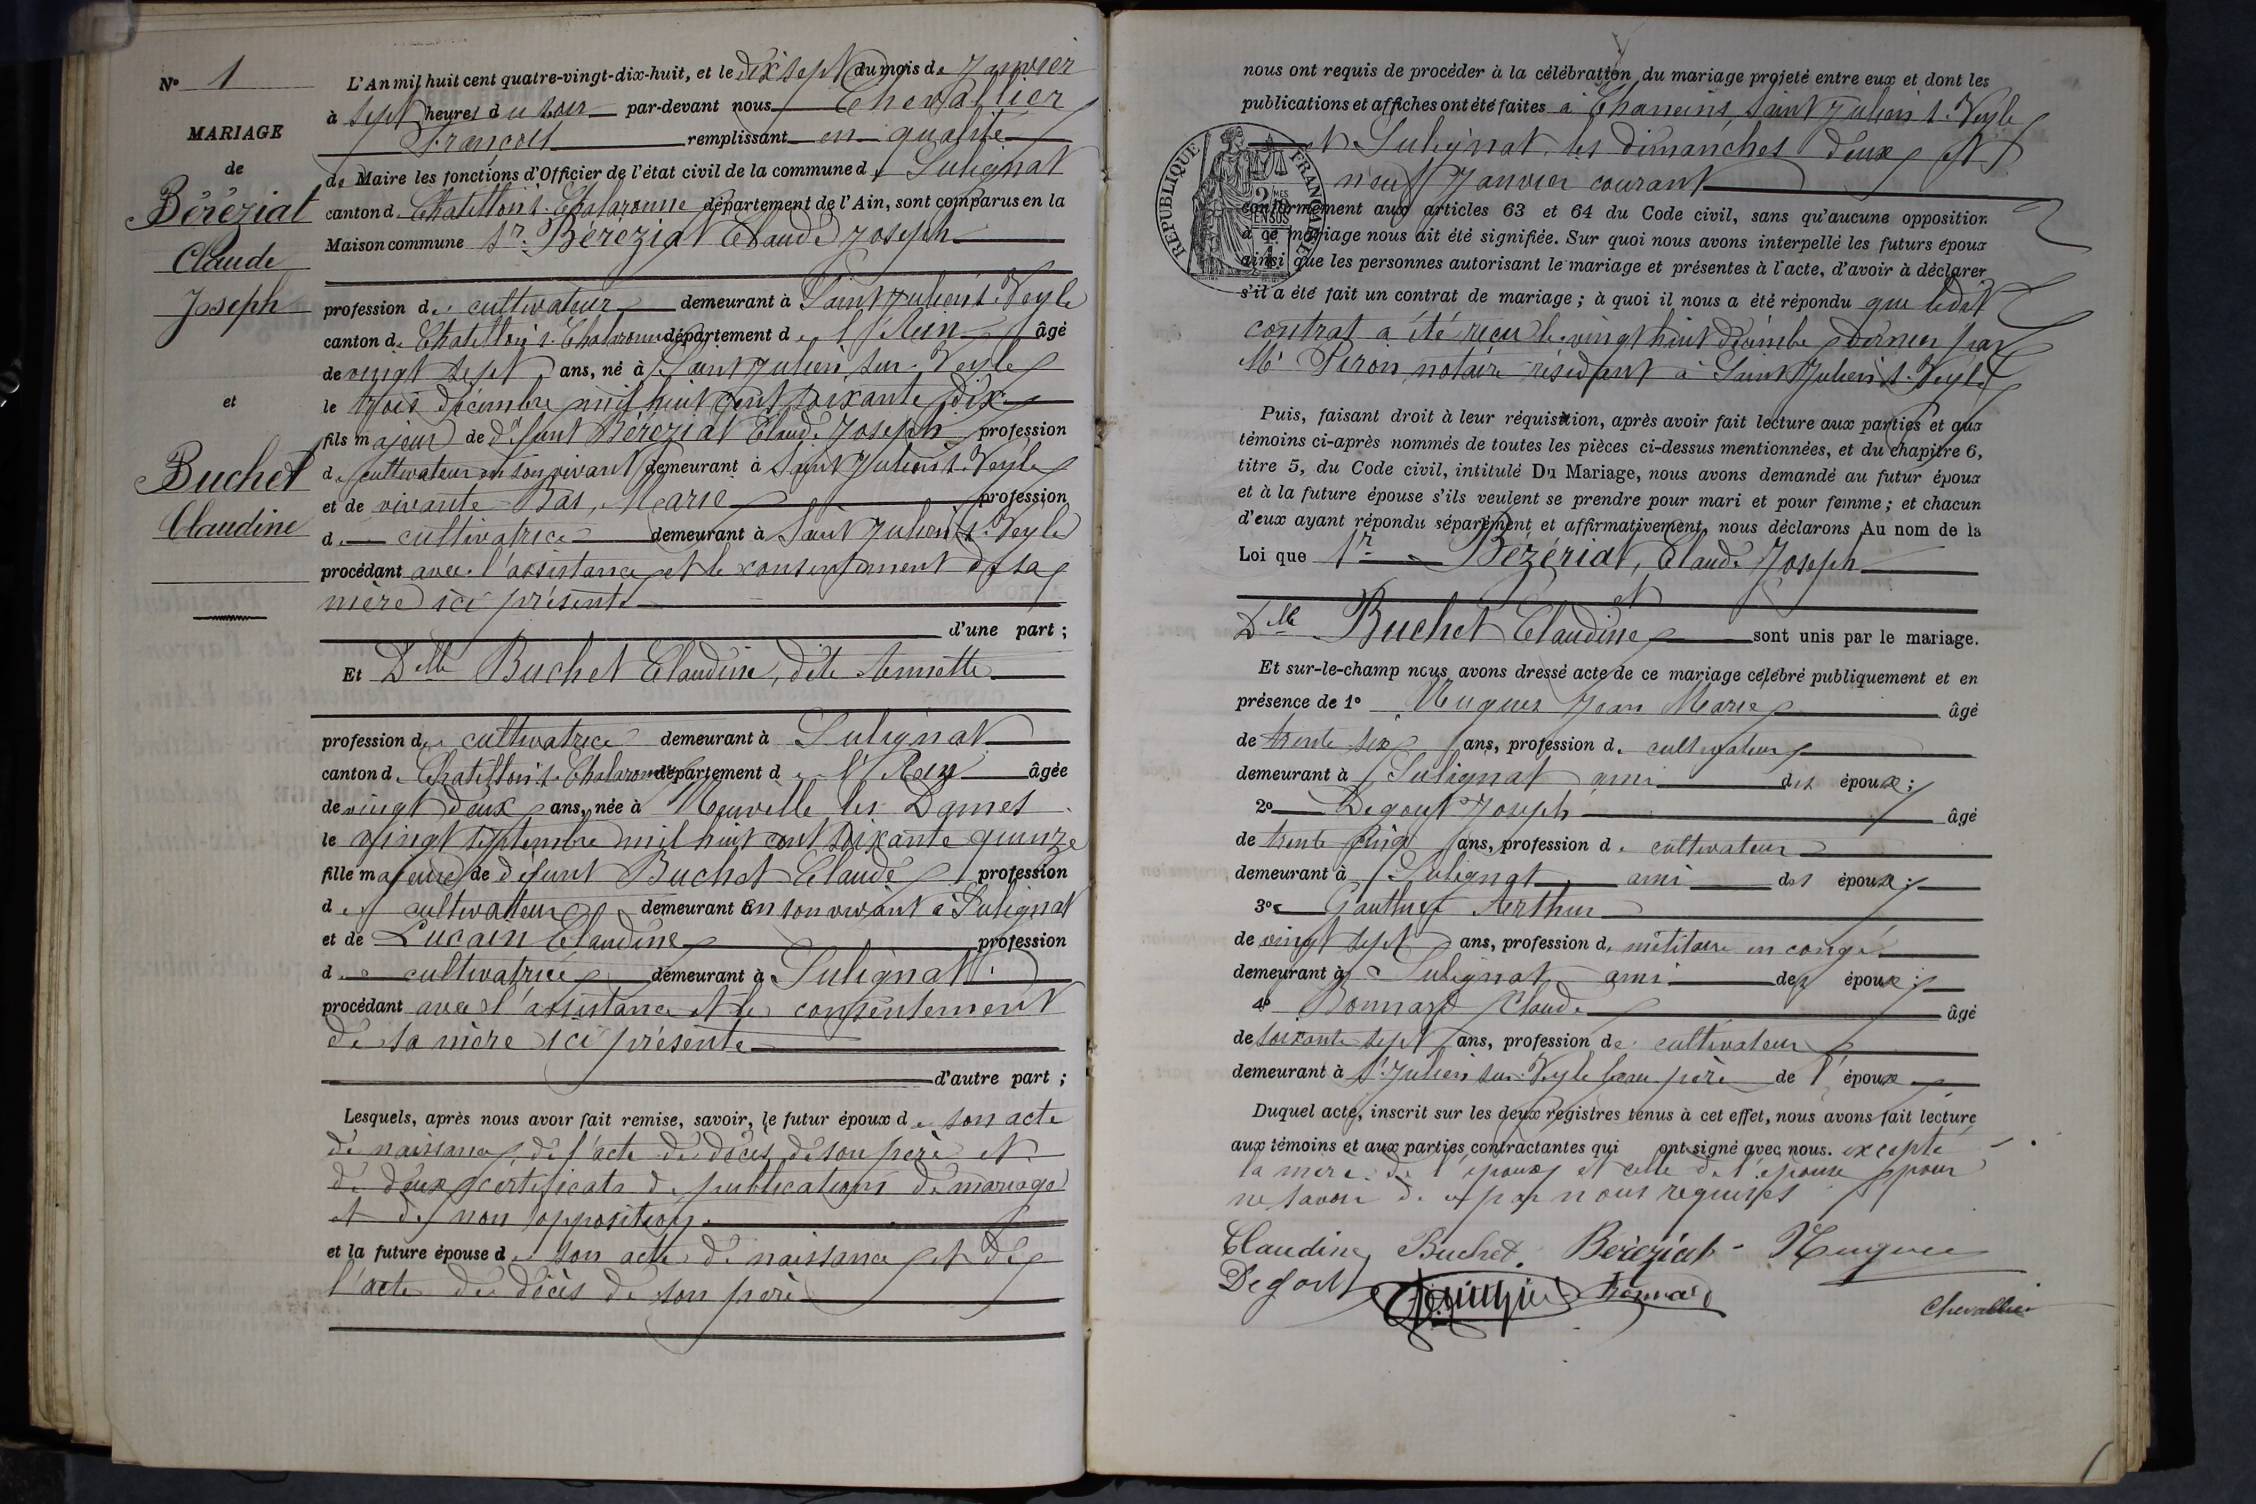 N° 1
MARIAGE
de
Béréziat
Claude
Joseph
et
Buchet
Claudine
L'An mil huit cent quatre-vingt-dix-huit, et le dix sept du mois de Janvier
à sept heures du soir par-devant nous Chevallier
François remplissant en qualité
de Maire les fonctions d'Officier de l'état civil de la commune de Sulignat
canton de Chatillon s. Chalaronne département de l'Ain, sont comparus en la
Maison commune Sr. Béréziat Claude Joseph
profession de cultivateur demeurant à Saint Julien s. Veyle
canton de Chatillon s. Chalaronne département de l'Ain âgé
de vingt sept ans, né à Saint Julien sur Veyle
le trois décembre mil huit cent soixante dix
fils majeur de défunt Béréziat Claude Joseph profession
de cultivateur en son vivant demeurant à Saint Julien s. Veyle
et de vivante Bas, Marie profession
de cultivatrice demeurant à Saint Julien s. Veyle
procédant avec l'assistance et le consentement de sa
mère ici présente
d'une part ;
Et Delle Buchet Claudine, dite Annette
profession de cultivatrice demeurant à Sulignat
canton de Chatillon s. Chalaronne département de l'Ain âgée
de vingt deux ans, née à Neuville les Dames
le vingt septembre mil huit cent soixante quinze
fille majeure de défunt Buchet Claude profession
de cultivateur demeurant en son vivant à Sulignat
et de Lucain Claudine profession
de cultivatrice demeurant à Sulignat
procédant avec l'assistance et le consentement
de sa mère ici présente
d'autre part ;
Lesquels, après nous avoir fait remise, savoir, le futur époux de son acte
de naissance, de l'acte de décès de son père et
de deux certificats de publications de mariage
et de non opposition.
et la future épouse de son acte de naissance et de
l'acte de décès de son père
nous ont requis de procéder à la célébration du mariage projeté entre eux et dont les
publications et affiches ont été faites à Chaneins, Saint Julien s. Veyle
et Sulignat les dimanches deux et
neuf Janvier courant
RÉPUBLIQUE FRANÇAISE
conformément aux articles 63 et 64 du Code civil, sans qu'aucune opposition
à ce mariage nous ait été signifiée. Sur quoi nous avons interpellé les futurs époux
ainsi que les personnes autorisant le mariage et présentes à l'acte, d'avoir à déclarer
s'il a été fait un contrat de mariage ; à quoi il nous a été répondu que ledit
contrat a été reçu le vingt huit décembre dernier par
Me Piron notaire résidant à Saint Julien s. Veyle
Puis, faisant droit à leur réquisition, après avoir fait lecture aux parties et aux
témoins ci-après nommés de toutes les pièces ci-dessus mentionnées, et du chapitre 6,
titre 5, du Code civil, intitulé Du Mariage, nous avons demandé au futur époux
et à la future épouse s'ils veulent se prendre pour mari et pour femme ; et chacun
d'eux ayant répondu séparément et affirmativement, nous déclarons Au nom de la
Loi que Sr Bézériat, Claude Joseph
et
Delle Buchet Claudine sont unis par le mariage.
Et sur-le-champ nous avons dressé acte de ce mariage célébré publiquement et en
présence de 1° Nugues Jean Marie âgé
de trente six ans, profession de cultivateur
demeurant à Sulignat ami des époux ;
2° Degout Joseph âgé
de trente cinq ans, profession de cultivateur
demeurant à Sulignat ami des époux ;
3° Arthur
de vingt sept ans, profession de militaire en congé
demeurant à Sulignat ami des époux ;
4° Bonnard Claude âgé
de soixante sept ans, profession de cultivateur
demeurant à St. Julien sur Veyle beau père de l'époux
Duquel acte, inscrit sur les deux registres tenus à cet effet, nous avons fait lecture
aux témoins et aux parties contractantes qui ont signé avec nous. excepté
la mère de l'époux et celle de l'épouse pour
ne savoir de ce par nous requises
Claudine Buchet. Béréziat Nugues
Degout Bonnard
Chevallier